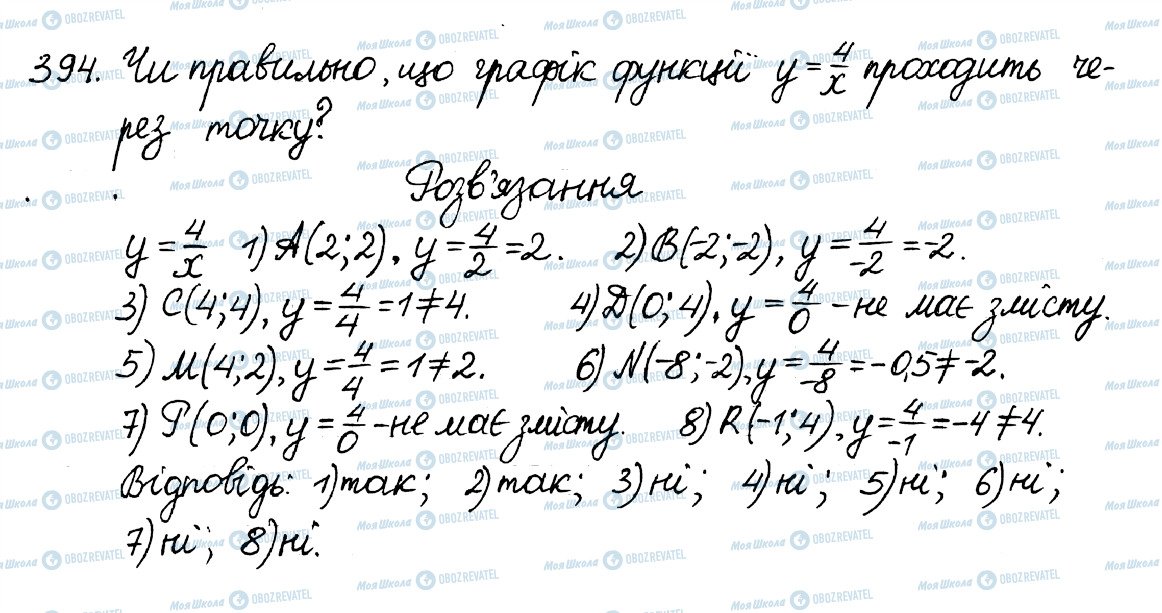 394. Чи правильно, що графік функції y = 4/x проходить че-
рез точку?
Розв'язання
y = 4/x 1) A(2; 2), y = 4/2 = 2. 2) B(-2; -2), y = 4/-2 = -2.
3) C(4; 4), y = 4/4 = 1 ≠ 4. 4) D(0; 4), y = 4/0 - не має змісту.
5) M(4; 2), y = 4/4 = 1 ≠ 2. 6) N(-8; -2), y = 4/-8 = -0,5 ≠ -2.
7) P(0; 0), y = 4/0 - не має змісту. 8) R(-1; 4), y = 4/-1 = -4 ≠ 4.
Відповідь: 1) так; 2) так; 3) ні; 4) ні; 5) ні; 6) ні;
7) ні; 8) ні.
Моя Школа OBOZREVATEL